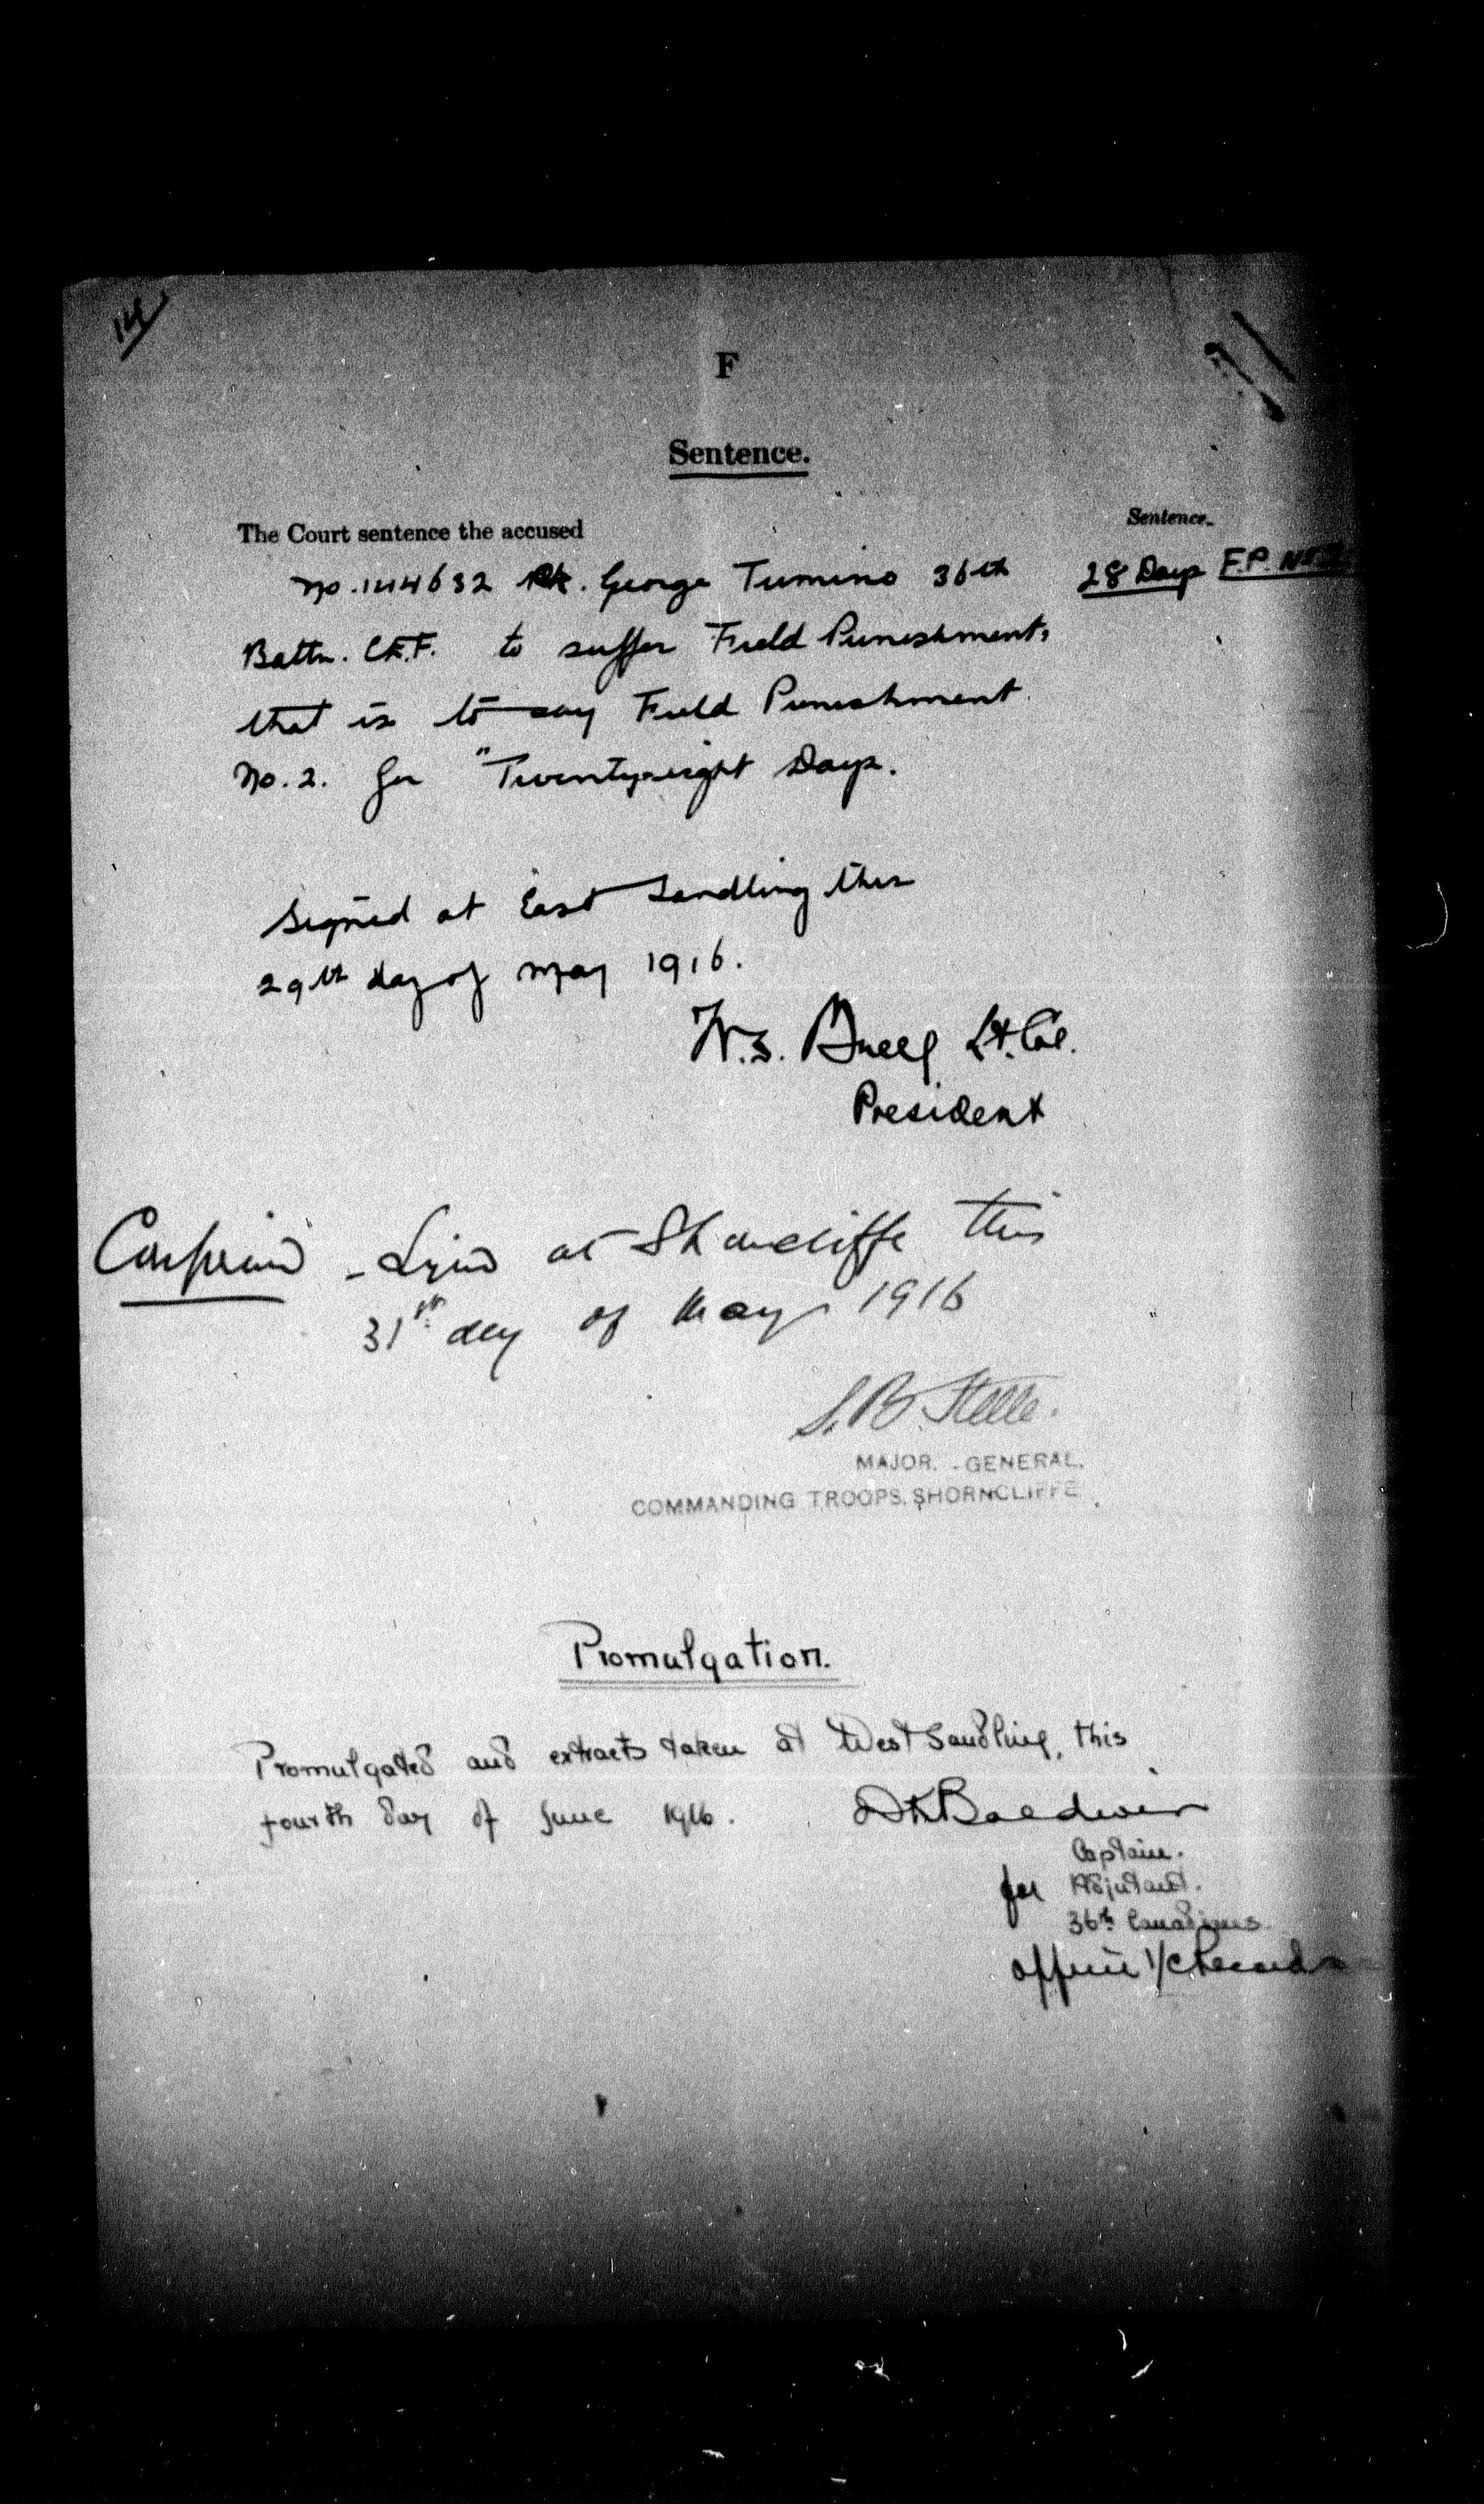 14
F
Sentence.
The Court sentence the accused
Sentence.
No. 144632 Pte. George Tumino 36th
28 Days F.P. No 2.
Battn. C.E.F. to suffer Field Punishment,
that is to say Field Punishment
No. 2. for "Twenty-eight Days.
Signed at East Sandling this
29th day of May 1916.
W.S. Buell Lt. Col.
President
Confirmed - Signed at Shorncliffe this
31st day of May 1916
S.B. Steele.
MAJOR. - GENERAL.
COMMANDING TROOPS. SHORNCLIFFE.
Promulgation.
Promulgated and extracts taken at West Sandling, this
fourth day of June 1916.
Baldwin
Captain.
for Adjutant.
36th Canadians.
Officer i/c Records